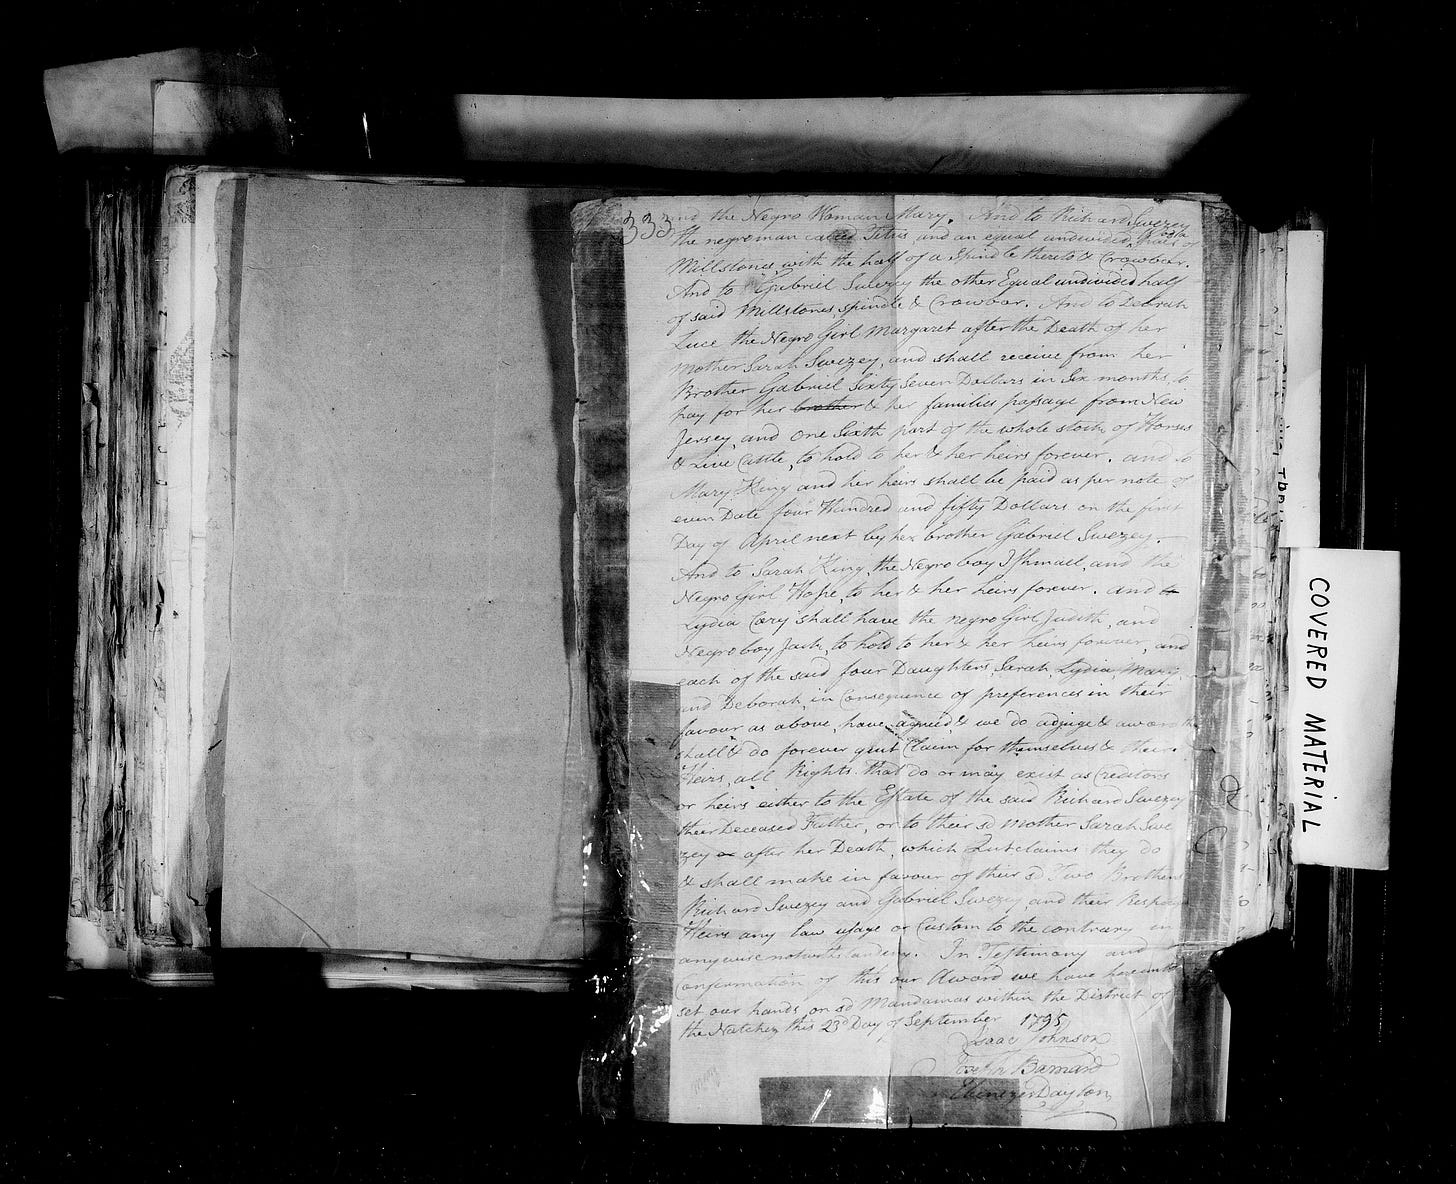 333
and the Negro Woman Mary. And to Richard Swezey
the negroman called Titus and an equal undivided half of
Millstones with the half of a Spindle thereto & Crowbar.
And to Gabriel Swezey the other Equal undivided half
of said Millstones, Spindle & Crowbar. And to Deborah
Luce the Negro Girl Margaret after the Death of her
Mother Sarah Swezey, and shall receive from her
Brother Gabriel Sixty Seven Dollars in Six months, to
pay for her brother & her families passage from New
Jersey, and one Sixth part of the whole stock of Horses
& Live Cattle, to hold to her & her heirs forever. and to
Mary King and her heirs shall be paid as per note of
even Date four Hundred and fifty Dollars on the first
Day of April next by her brother Gabriel Swezey.
And to Sarah King, the Negro boy Ishmael, and the
Negro Girl Hope, to her & her heirs forever. and to
Lydia Cory shall have the negro Girl Judith, and
Negro boy Jack, to hold to her & her heirs forever, and
each of the said four Daughters, Sarah, Lydia, Mary
and Deborah, in Consequence of preferences in their
favour as above, have agreed & we do adjuge & award the
shall & do forever quit Claim for themselves & their
Heirs, all Rights that do or may exist as Creditors
or heirs either to the Estate of the said Richard Swezey
their Deceased Father, or to their sd Mother Sarah Swe
zey or after her Death, which Quitclaims they do
& shall make in favour of their sd Two Brothers
Richard Swezey and Gabriel Swezey, and their Respec
Heirs any law usage or Custom to the contrary in
anywise notwithstanding. In Testimony and
Confirmation of this our Award we have hereunto
set our hands, on sd Mandamas within the District of
the Natchez this 23d Day of September 1795
Isaac Johnson
Joseph Barnard
Ebenezer Dayton
COVERED MATERIAL